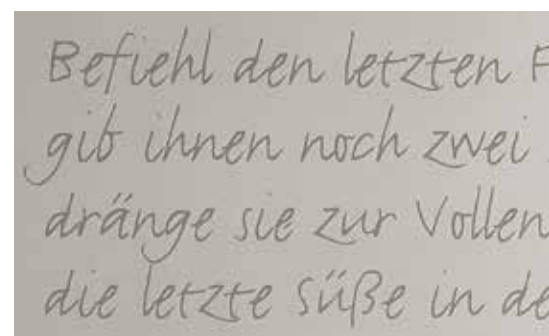 Befiehl den letzten F
gib ihnen noch zwei
dränge sie zur Vollen
die letzte Süße in de